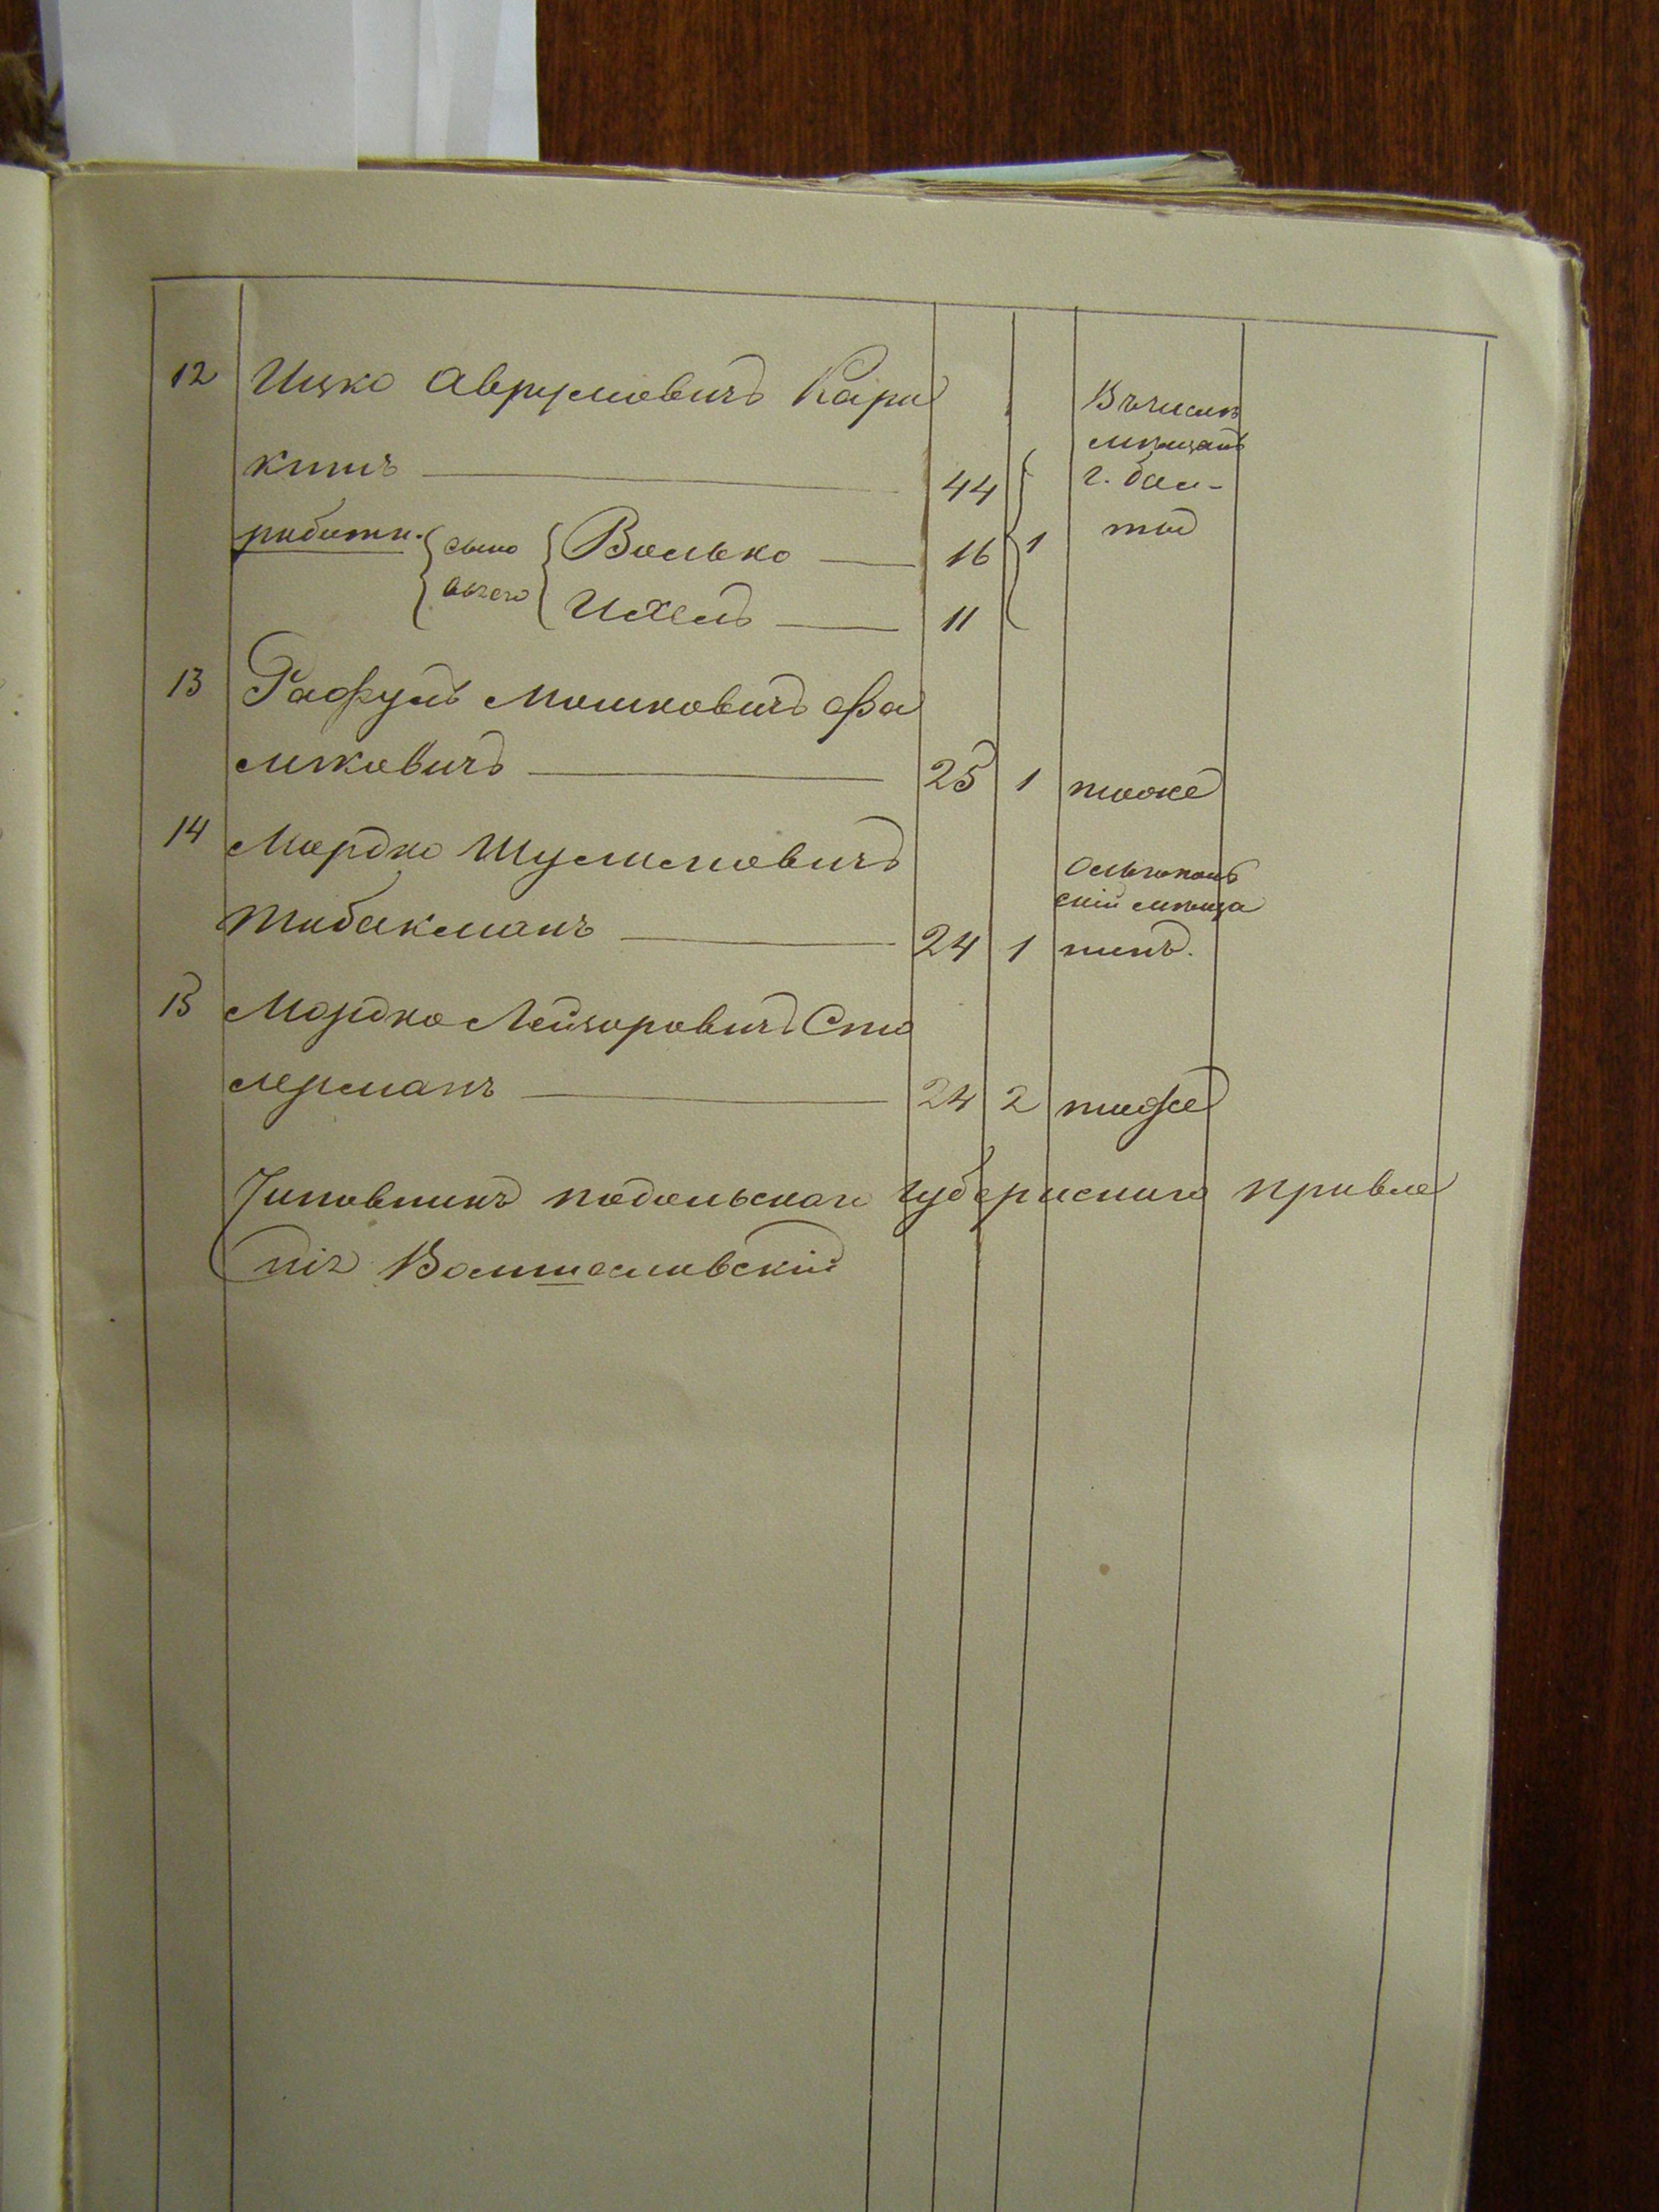 12 Ицко Аврумовичъ Кори
китъ 44
Въ числѣ
мѣщанъ
г. Бал-
ты
работн. сыно
вья его
Волько 16 1
Ихель 11
13 Рафулъ Мошковичъ Фа
ликовичъ 25 1 тоже
14 Мордко Шулимовичъ
Табакманъ 24 1
Ольгополь
скій мѣща
нинъ.
15 Мордко Лейзоровичъ Сто
лерманъ 24 2 тоже
Чиновникъ подольскаго губернскаго правле
нія